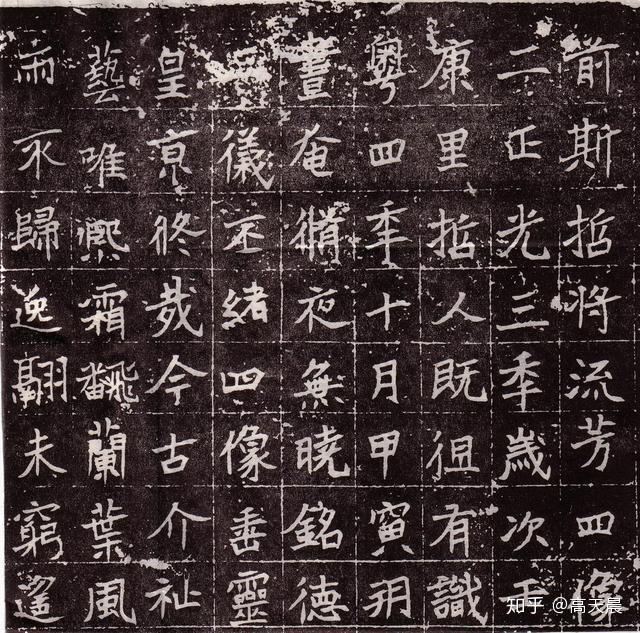 前斯哲将流芳四像
二正光三季歲次壬
康里哲人既徂有識
粵四季十月甲寅朔
晝奄脩夜無曉銘德
儀丕緒四像垂靈
皇亰終哉今古介祉
藝唯熙霜飜蘭葉風
而不歸逸翮未窮遙
知乎 @高天晨